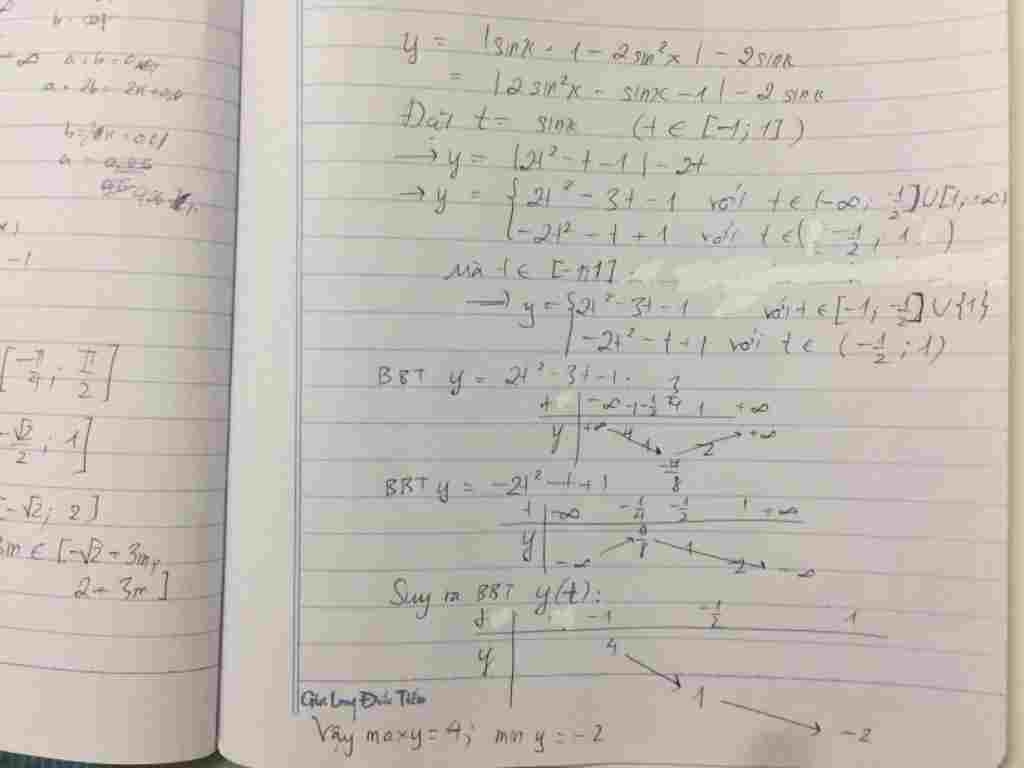 a + b = 0,
a + 2b =
-1
[-π/4; π/2]
-√2/2; 1]
[-√2; 2]
3m ∈ [-√2 - 3m,
2 - 3m]
y = |sinx + 1 - 2sin²x| - 2sinx
= |2sin²x - sinx - 1| - 2sinx
Đặt t = sinx (t ∈ [-1; 1])
→ y = |2t² - t - 1| - 2t
→ y = { 2t² - 3t - 1 với t ∈ (-∞; -1/2] ∪ [1; +∞)
{ -2t² - t + 1 với t ∈ (-1/2; 1)
Mà t ∈ [-1;1]
→ y = { 2t² - 3t - 1 với t ∈ [-1; -1/2] ∪ {1}
{ -2t² - t + 1 với t ∈ (-1/2; 1)
BBT y = 2t² - 3t - 1.
t | -∞ -1 -1/2 3/4 1 +∞
y | +∞ 4 1 -17/8 -2 +∞
BBT y = -2t² - t + 1
t | -∞ -1/4 -1/2 1 +∞
y | -∞ 9/8 1 -2 -∞
Suy ra BBT y(t):
t | -1 -1/2 1
y | 4 1 -2
Vậy max y = 4; min y = -2